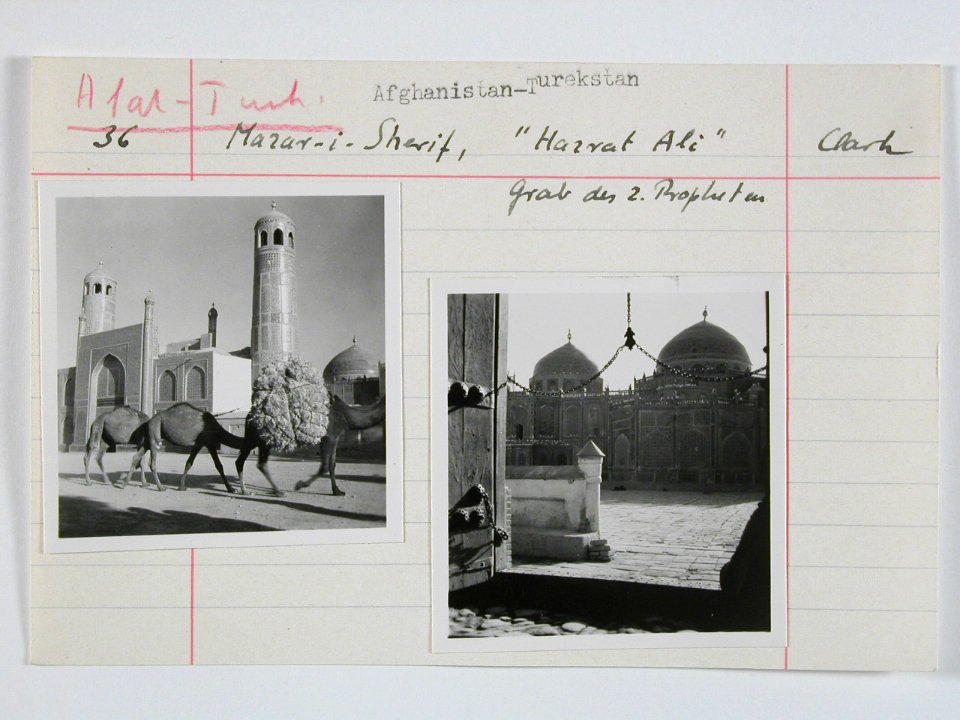 Afghanistan-Turekstan
Afat-Turk.
36 Mazar-i-Sherif, "Hazrat Ali" Clark
Grab des 2. Propheten